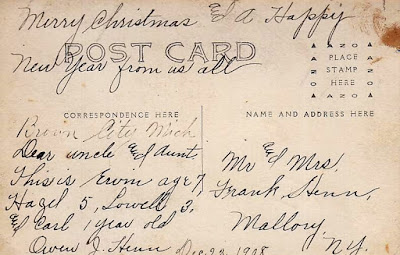 Merry Christmas & A Happy
POST CARD
New Year from us all
AZO
PLACE
STAMP
HERE
AZO
CORRESPONDENCE HERE
NAME AND ADDRESS HERE
Brown City Mich
Dear uncle & Aunt,
This is Erwin age 7,
Hazel 5, Lowell 3,
& Carl 1 year old
Owen J. Henn Dec 22
Mr & Mrs.
Frank Henn,
Mallory,
N.Y.